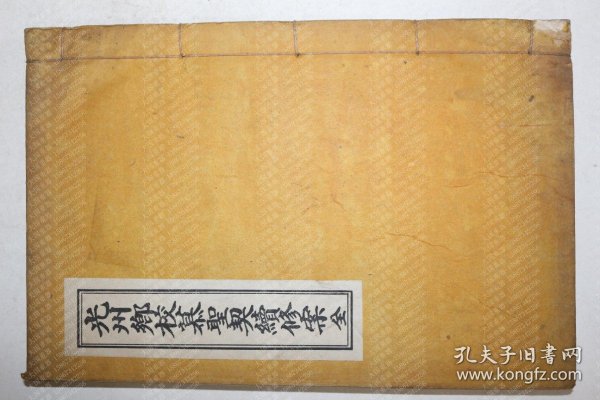 光州鄉校慕聖契續修案 全
孔夫子旧书网
www.kongfz.com